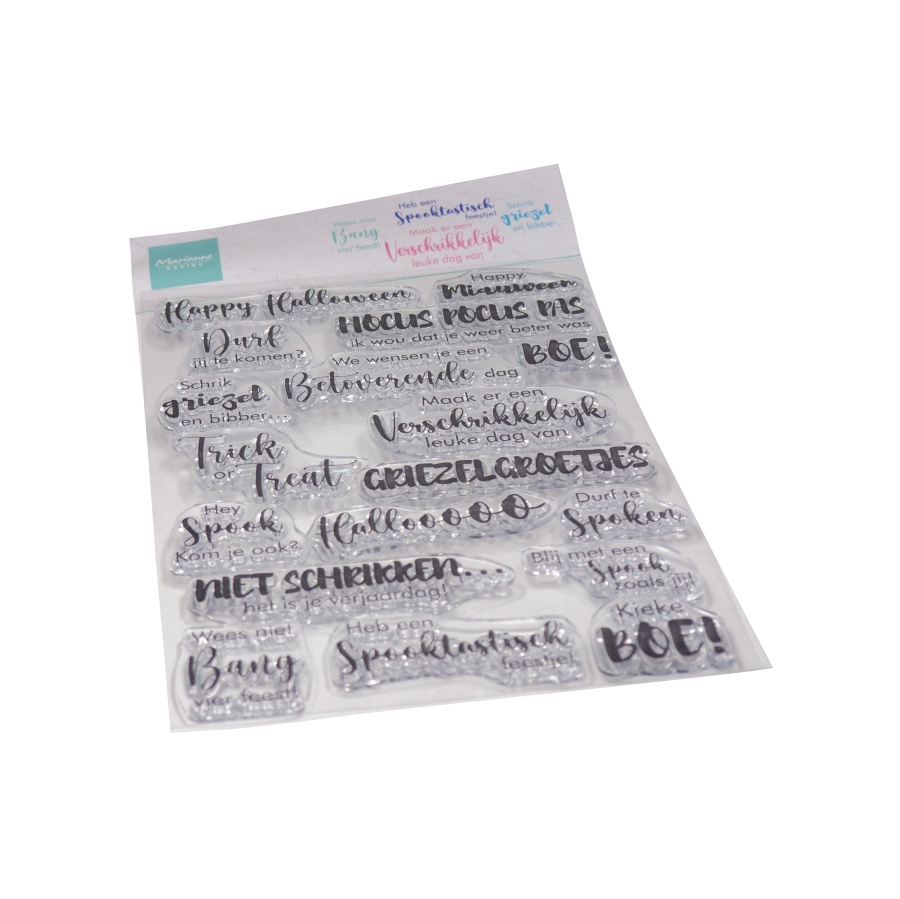 Marianne
DESIGN
Wees niet
Bang
vier feest!
Heb een
Spooktastisch
feestje!
Schrik
griezel
en bibber...
Maak er een
Verschrikkelijk
leuke dag van
Happy Halloween
Happy
Miauween
Durf
jij te komen?
HOCUS POCUS PAS
ik wou dat je weer beter was
We wensen je een
Betoverende dag
BOE!
Schrik
griezel
en bibber...
Maak er een
Verschrikkelijk
leuke dag van
Trick
or Treat
GRIEZELGROETJES
Hey
Spook
Kom je ook?
Hallooooo
Durf te
Spoken
NIET SCHRIKKEN...
het is je verjaardag!
Blij met een
Spook
zoals jij!
Wees niet
Bang
vier feest!
Heb een
Spooktastisch
feestje!
Kieke
BOE!